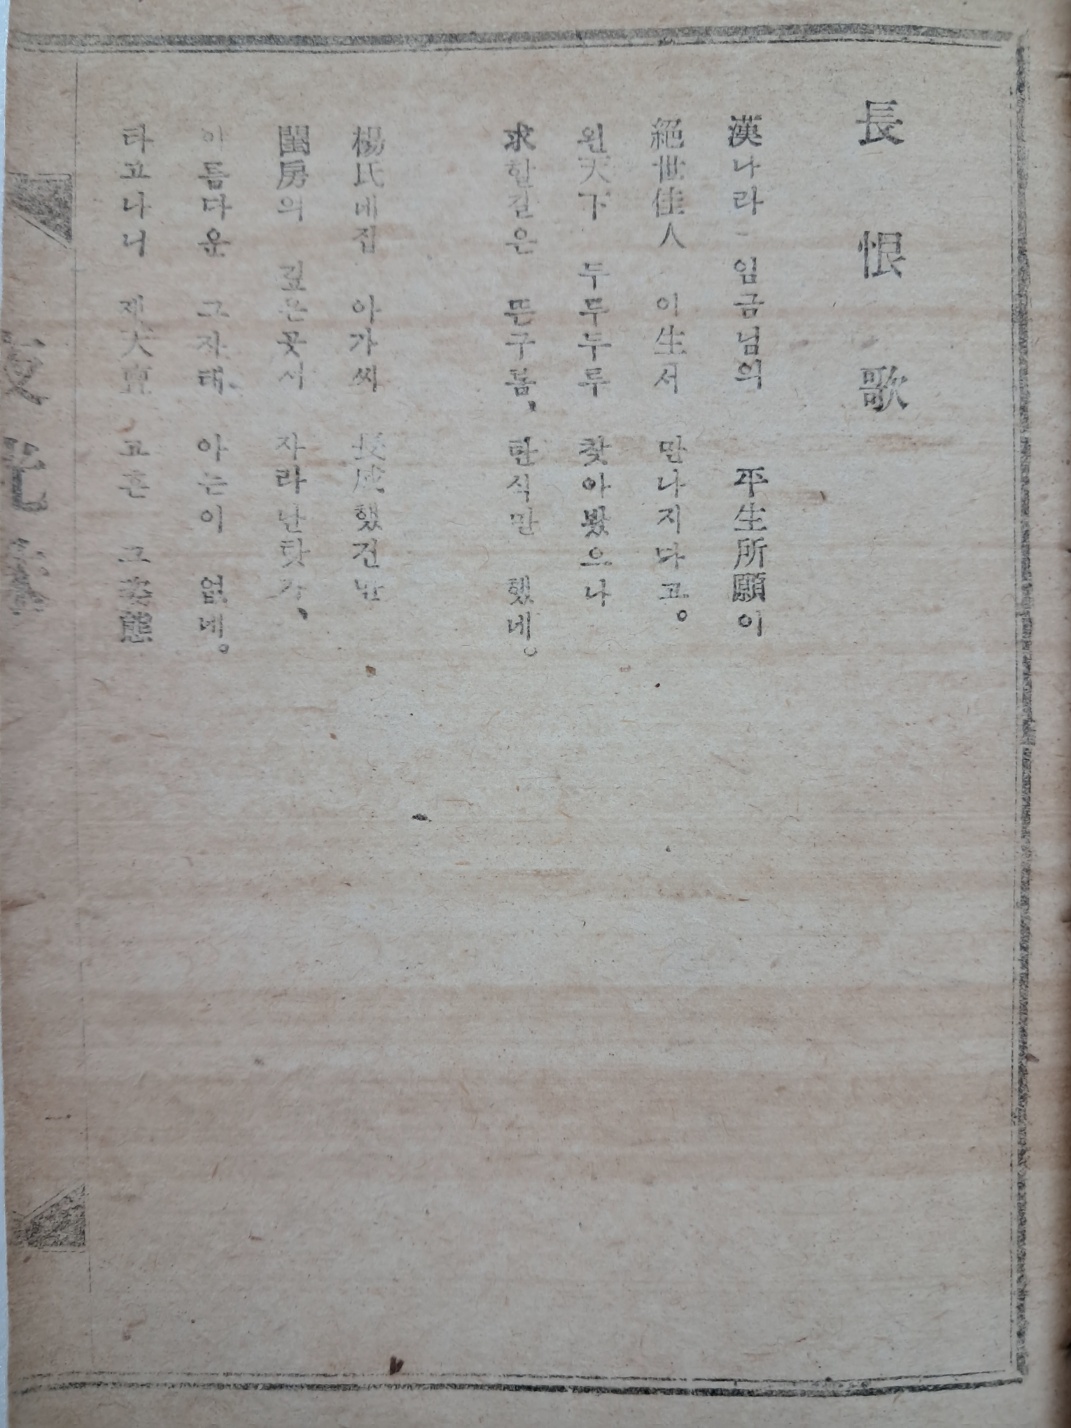 長恨歌
漢나라 임금님의 平生所願이
絕世佳人 이生서 만나지다고。
왼天下 두루두루 찾아봤으나
求할길은 뜬구름、 한식만 했네。
楊氏네집 아가씨 長成했건만
閨房의 깊은곳서 자라난탓가、
아름다운 그자태 아는이 없네。
타고나니 제大宣 고흔 그姿態